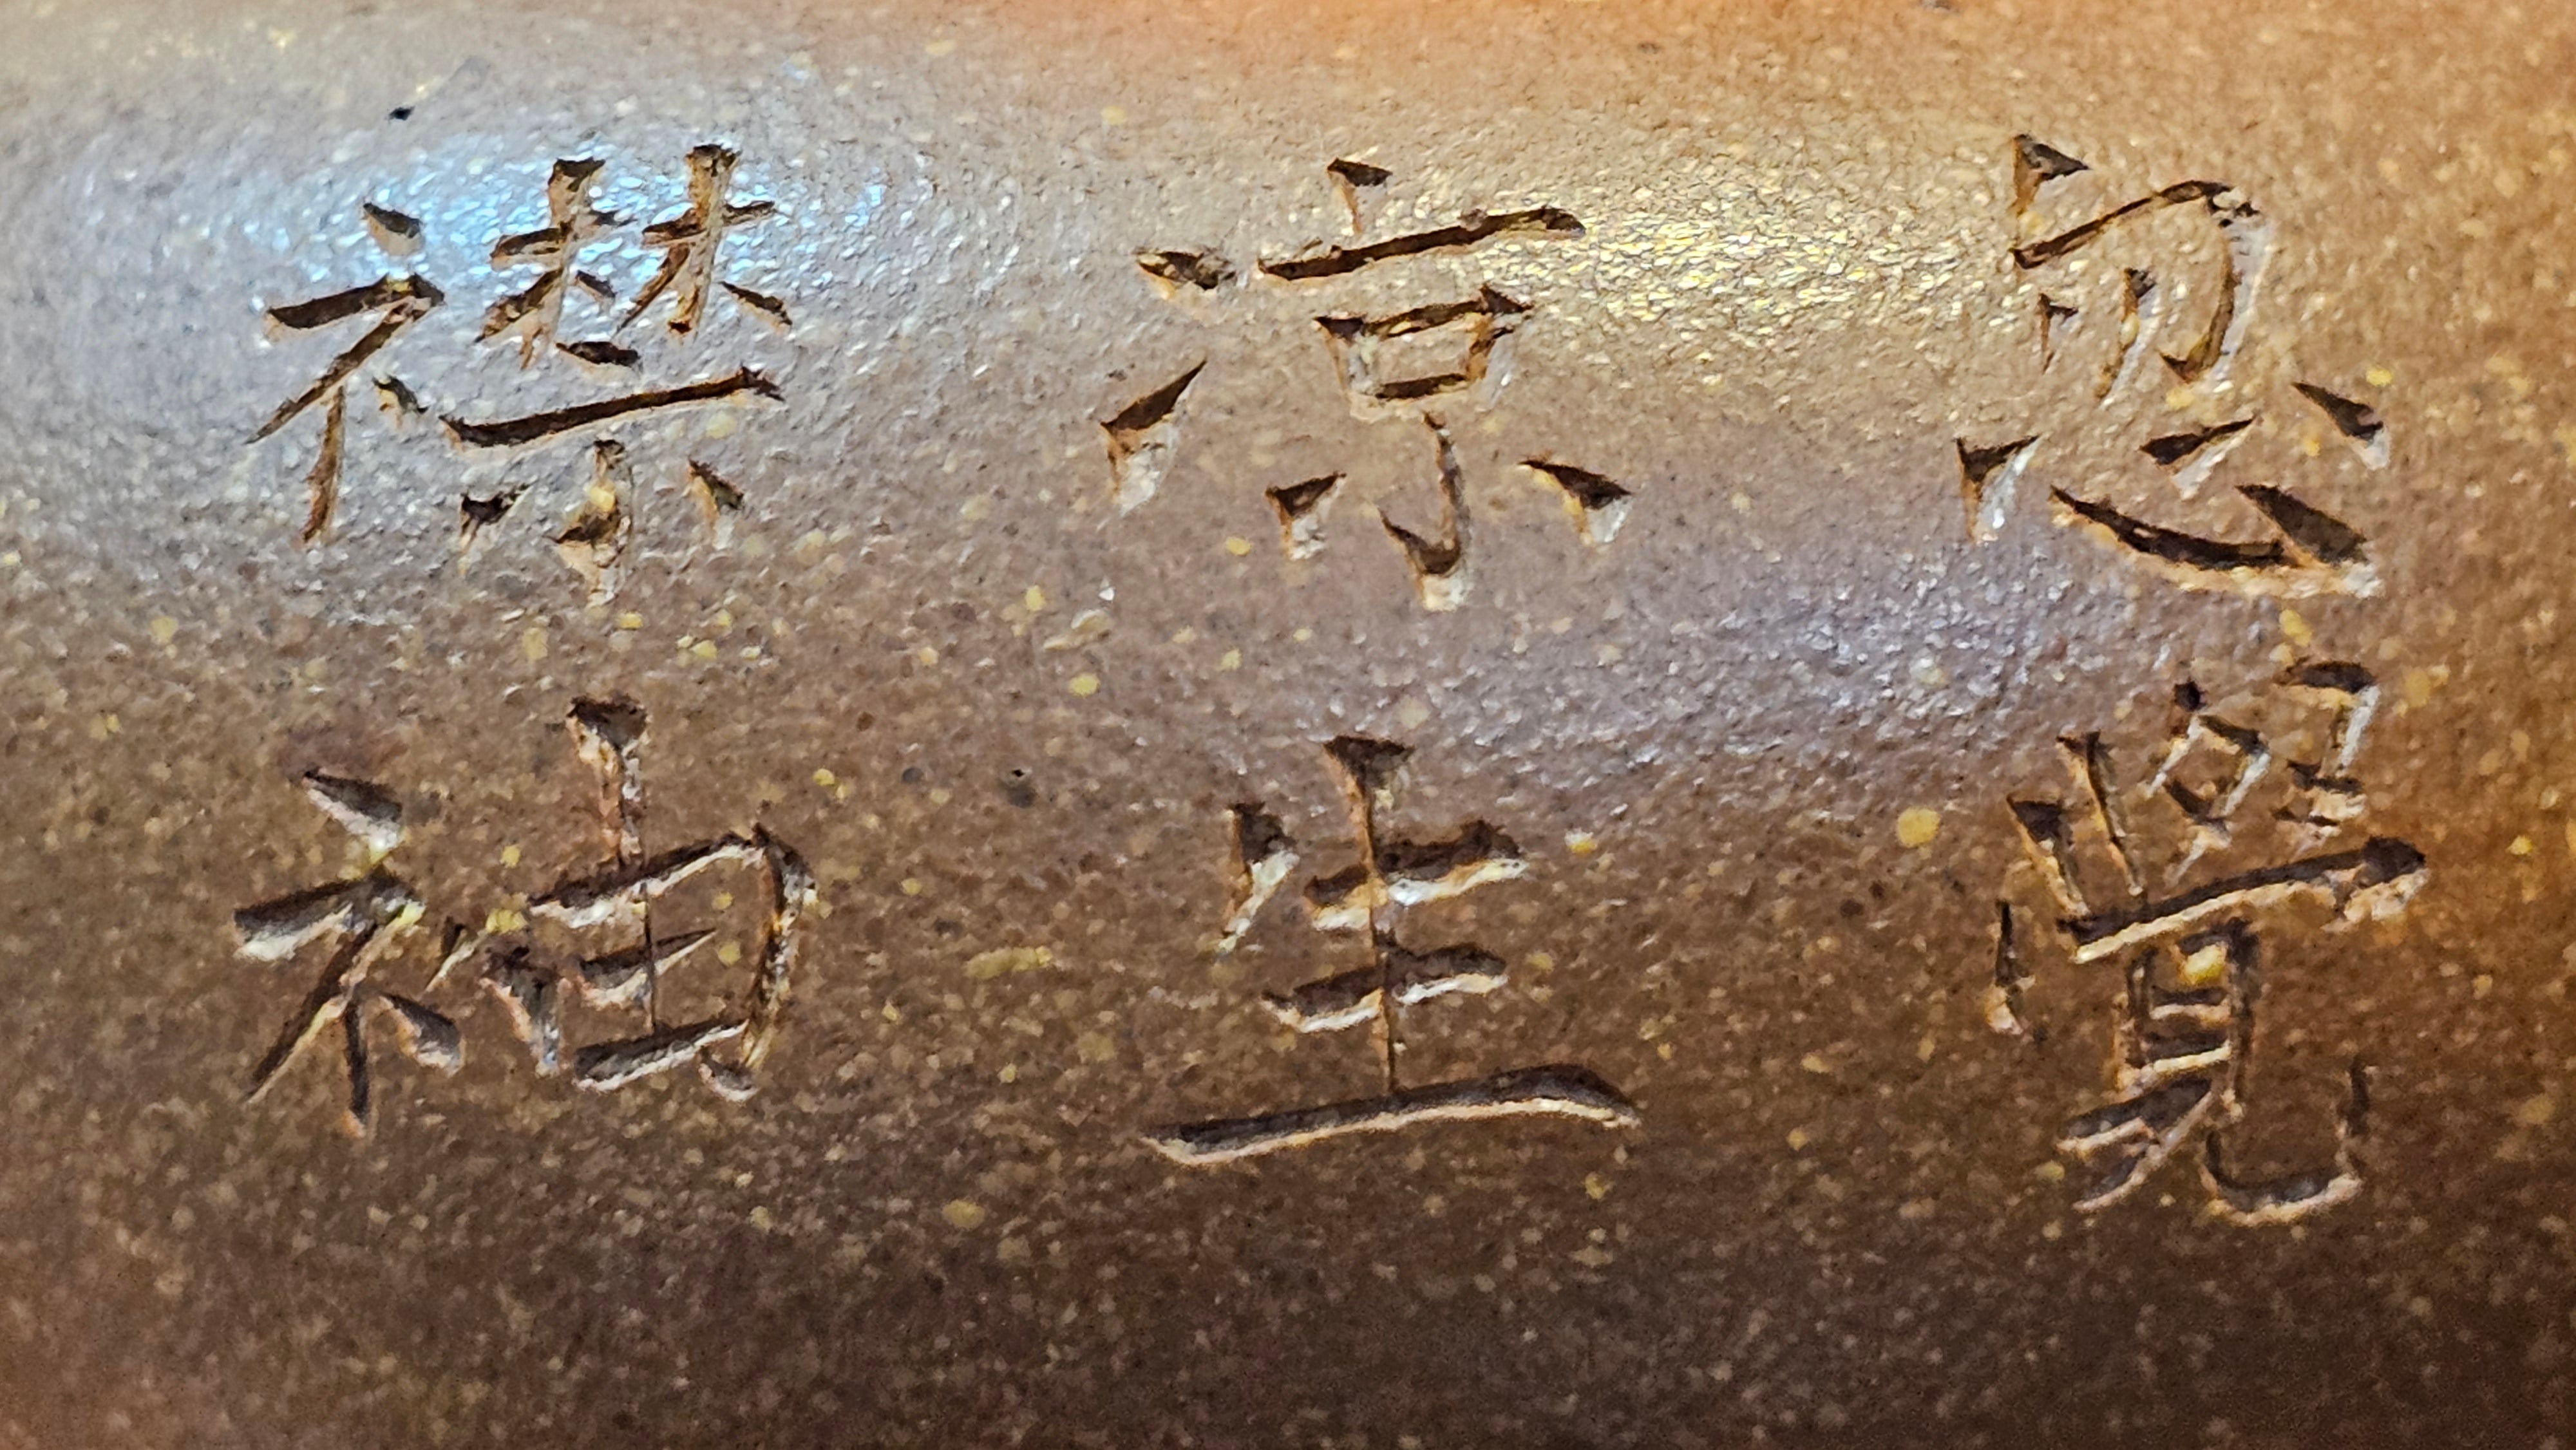 忽覺
凉生
襟袖